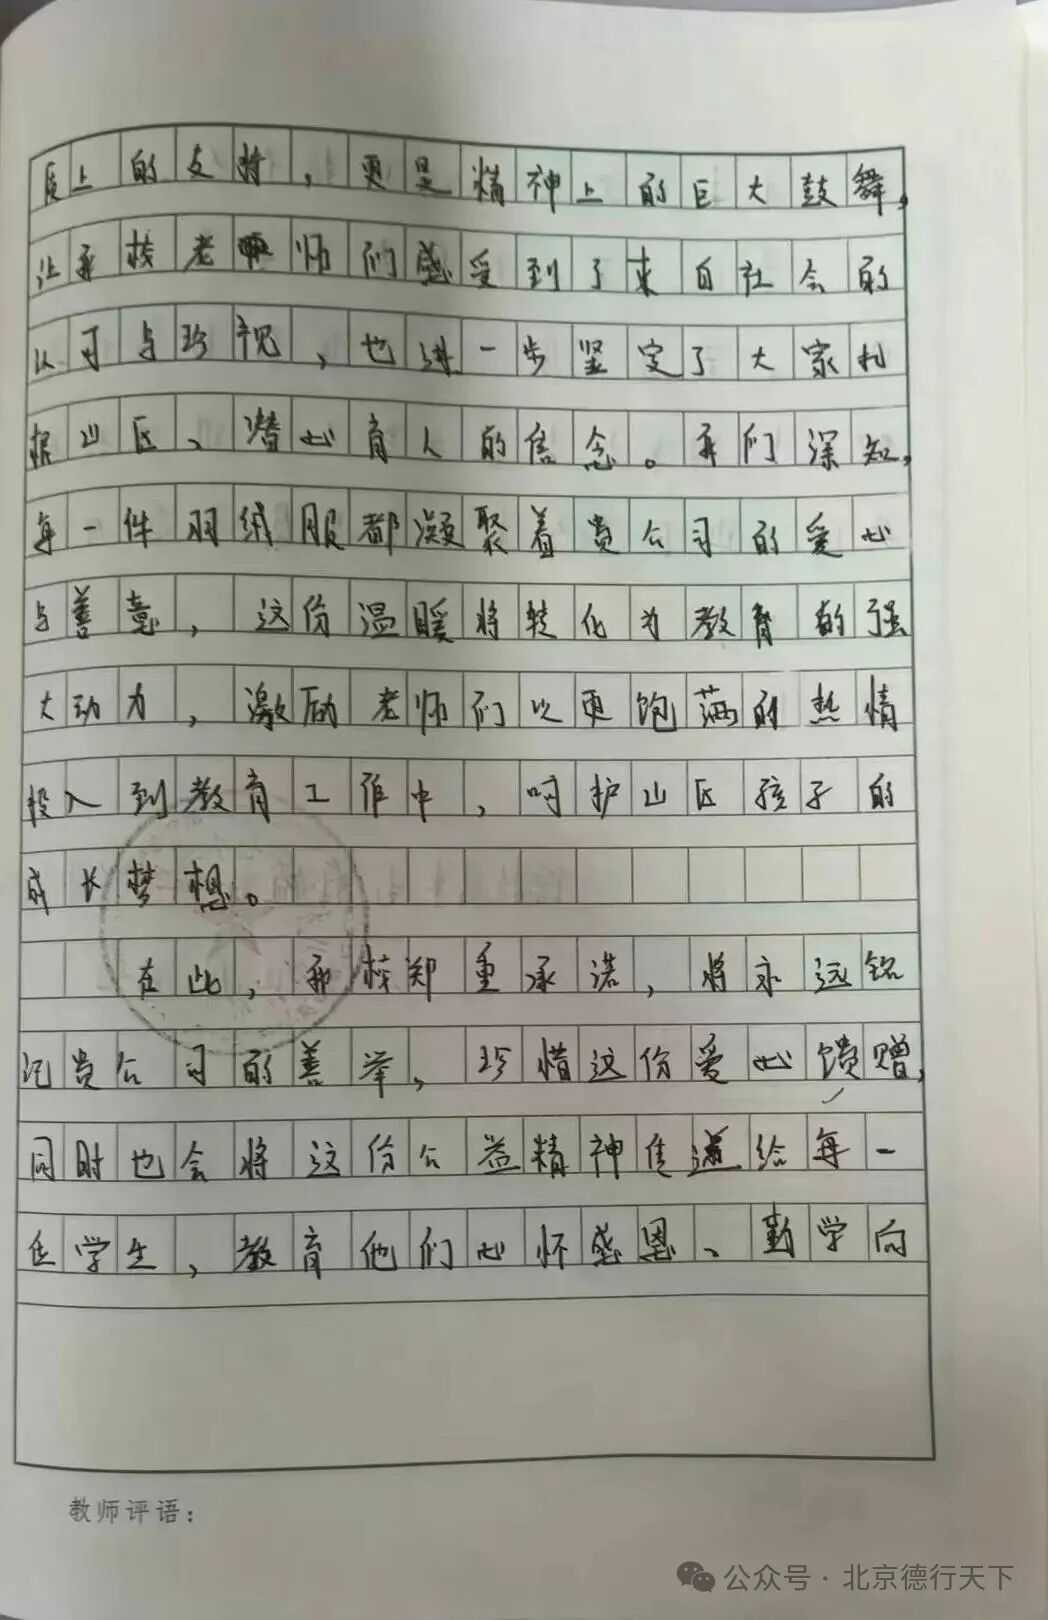 质上的支持，更是精神上的巨大鼓舞，
让我校老师们感受到了来自社会的
认可与珍视，也进一步坚定了大家扎
根山区、潜心育人的信念。我们深知，
每一件羽绒服都凝聚着贵公司的爱心
与善意，这份温暖将转化为教育的强
大动力，激励老师们以更饱满的热情
投入到教育工作中，呵护山区孩子的
成长梦想。
在此，我校郑重承诺，将永远铭
记贵公司的善举，珍惜这份爱心馈赠，
同时也会将这份公益精神传递给每一
位学生，教育他们心怀感恩、勤学向
教师评语：
公众号·北京德行天下